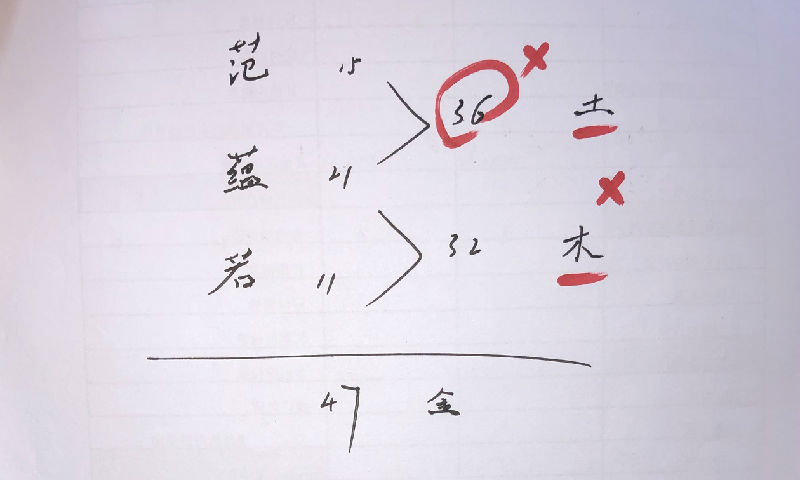 范 15
36 土
蕴 21
32 木
若 11
47 金